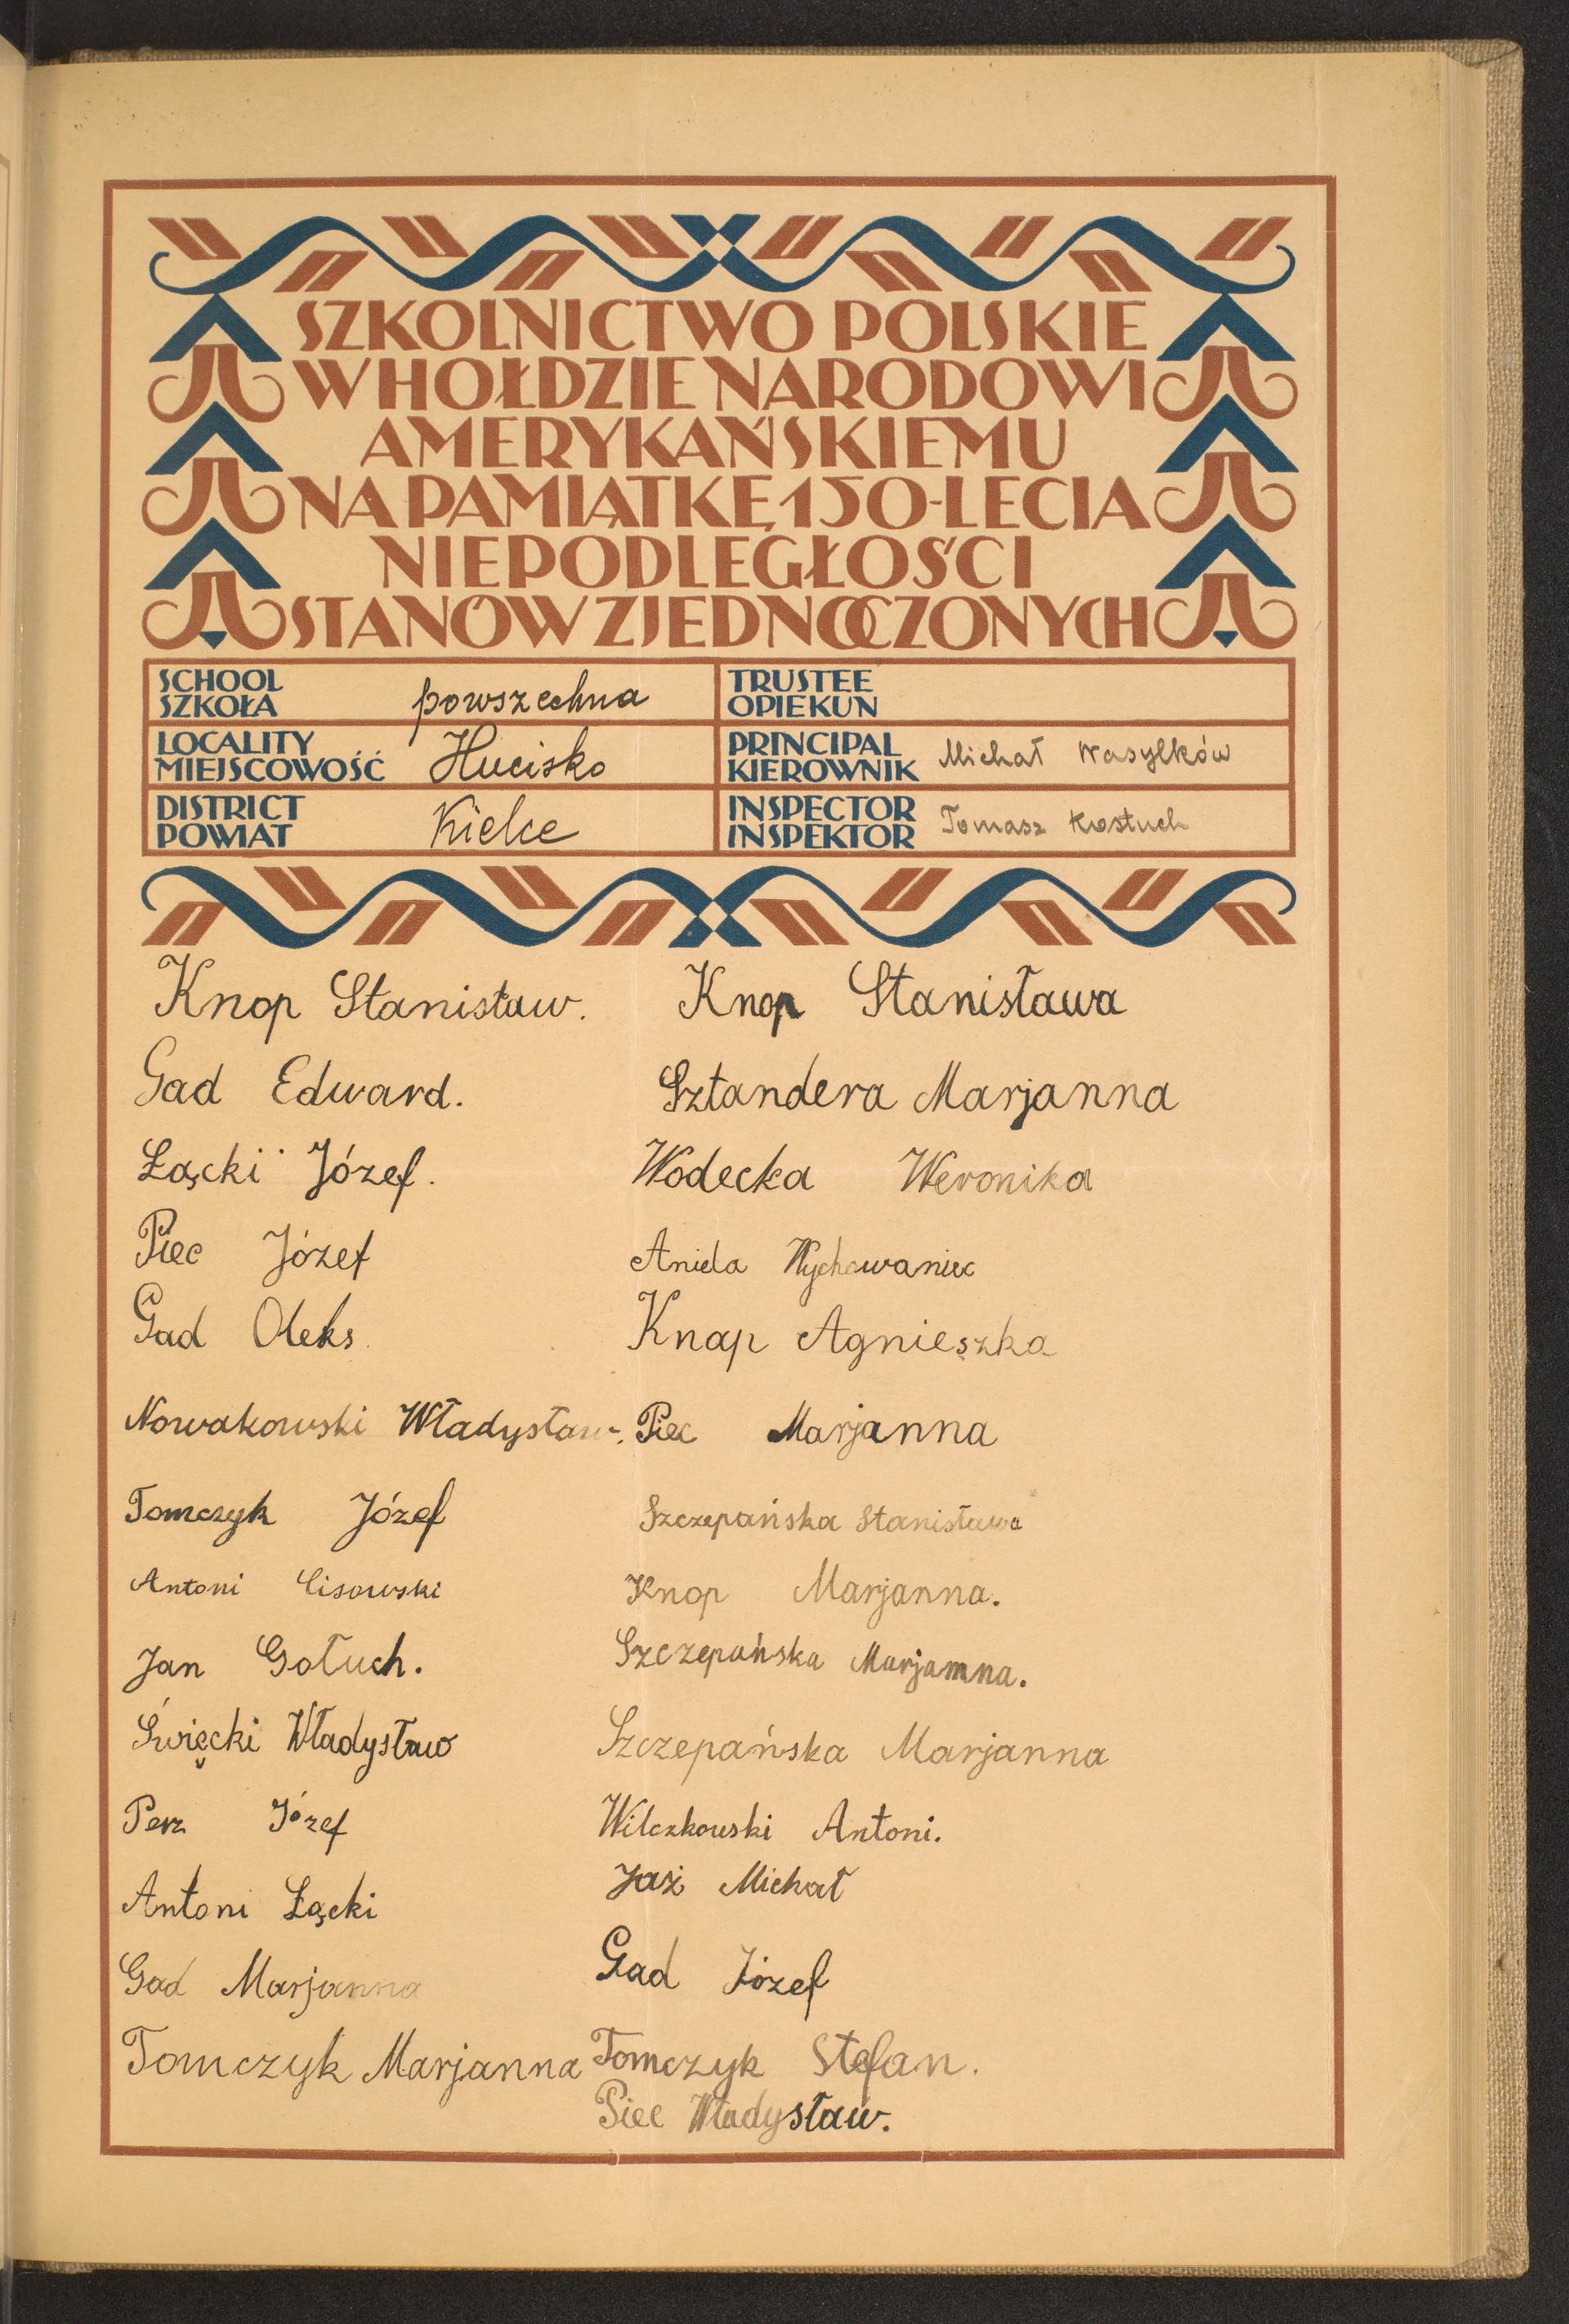 SZKOLNICTWO POLSKIE
W HOŁDZIE NARODOWI
AMERYKAŃSKIEMU
NA PAMIĄTKĘ 150-LECIA
NIEPODLEGŁOŚCI
STANÓW ZJEDNOCZONYCH
SCHOOL
SZKOŁA powszechna
TRUSTEE
OPIEKUN
LOCALITY
MIEJSCOWOŚĆ Hucisko
PRINCIPAL
KIEROWNIK Michał Wasylków
DISTRICT
POWIAT Kielce
INSPECTOR
INSPEKTOR Tomasz Kostuch
Knop Stanisław.
Gad Edward.
Łącki Józef.
Piec Józef
Gad Oleks
Nowakowski Władysław.
Tomczyk Józef
Antoni Cisowski
Jan Gołuch.
Święcki Władysław
Perz Józef
Antoni Łącki
Gad Marjanna
Tomczyk Marjanna
Knop Stanisława
Sztandera Marjanna
Wodecka Weronika
Aniela Wychowaniec
Knap Agnieszka
Piec Marjanna
Szczepańska Stanisława
Knop Marjanna.
Szczepańska Marjamna.
Szczepańska Marjanna
Wilczkowski Antoni.
Jaż Michał
Gad Józef
Tomczyk Stefan.
Piec Władysław.